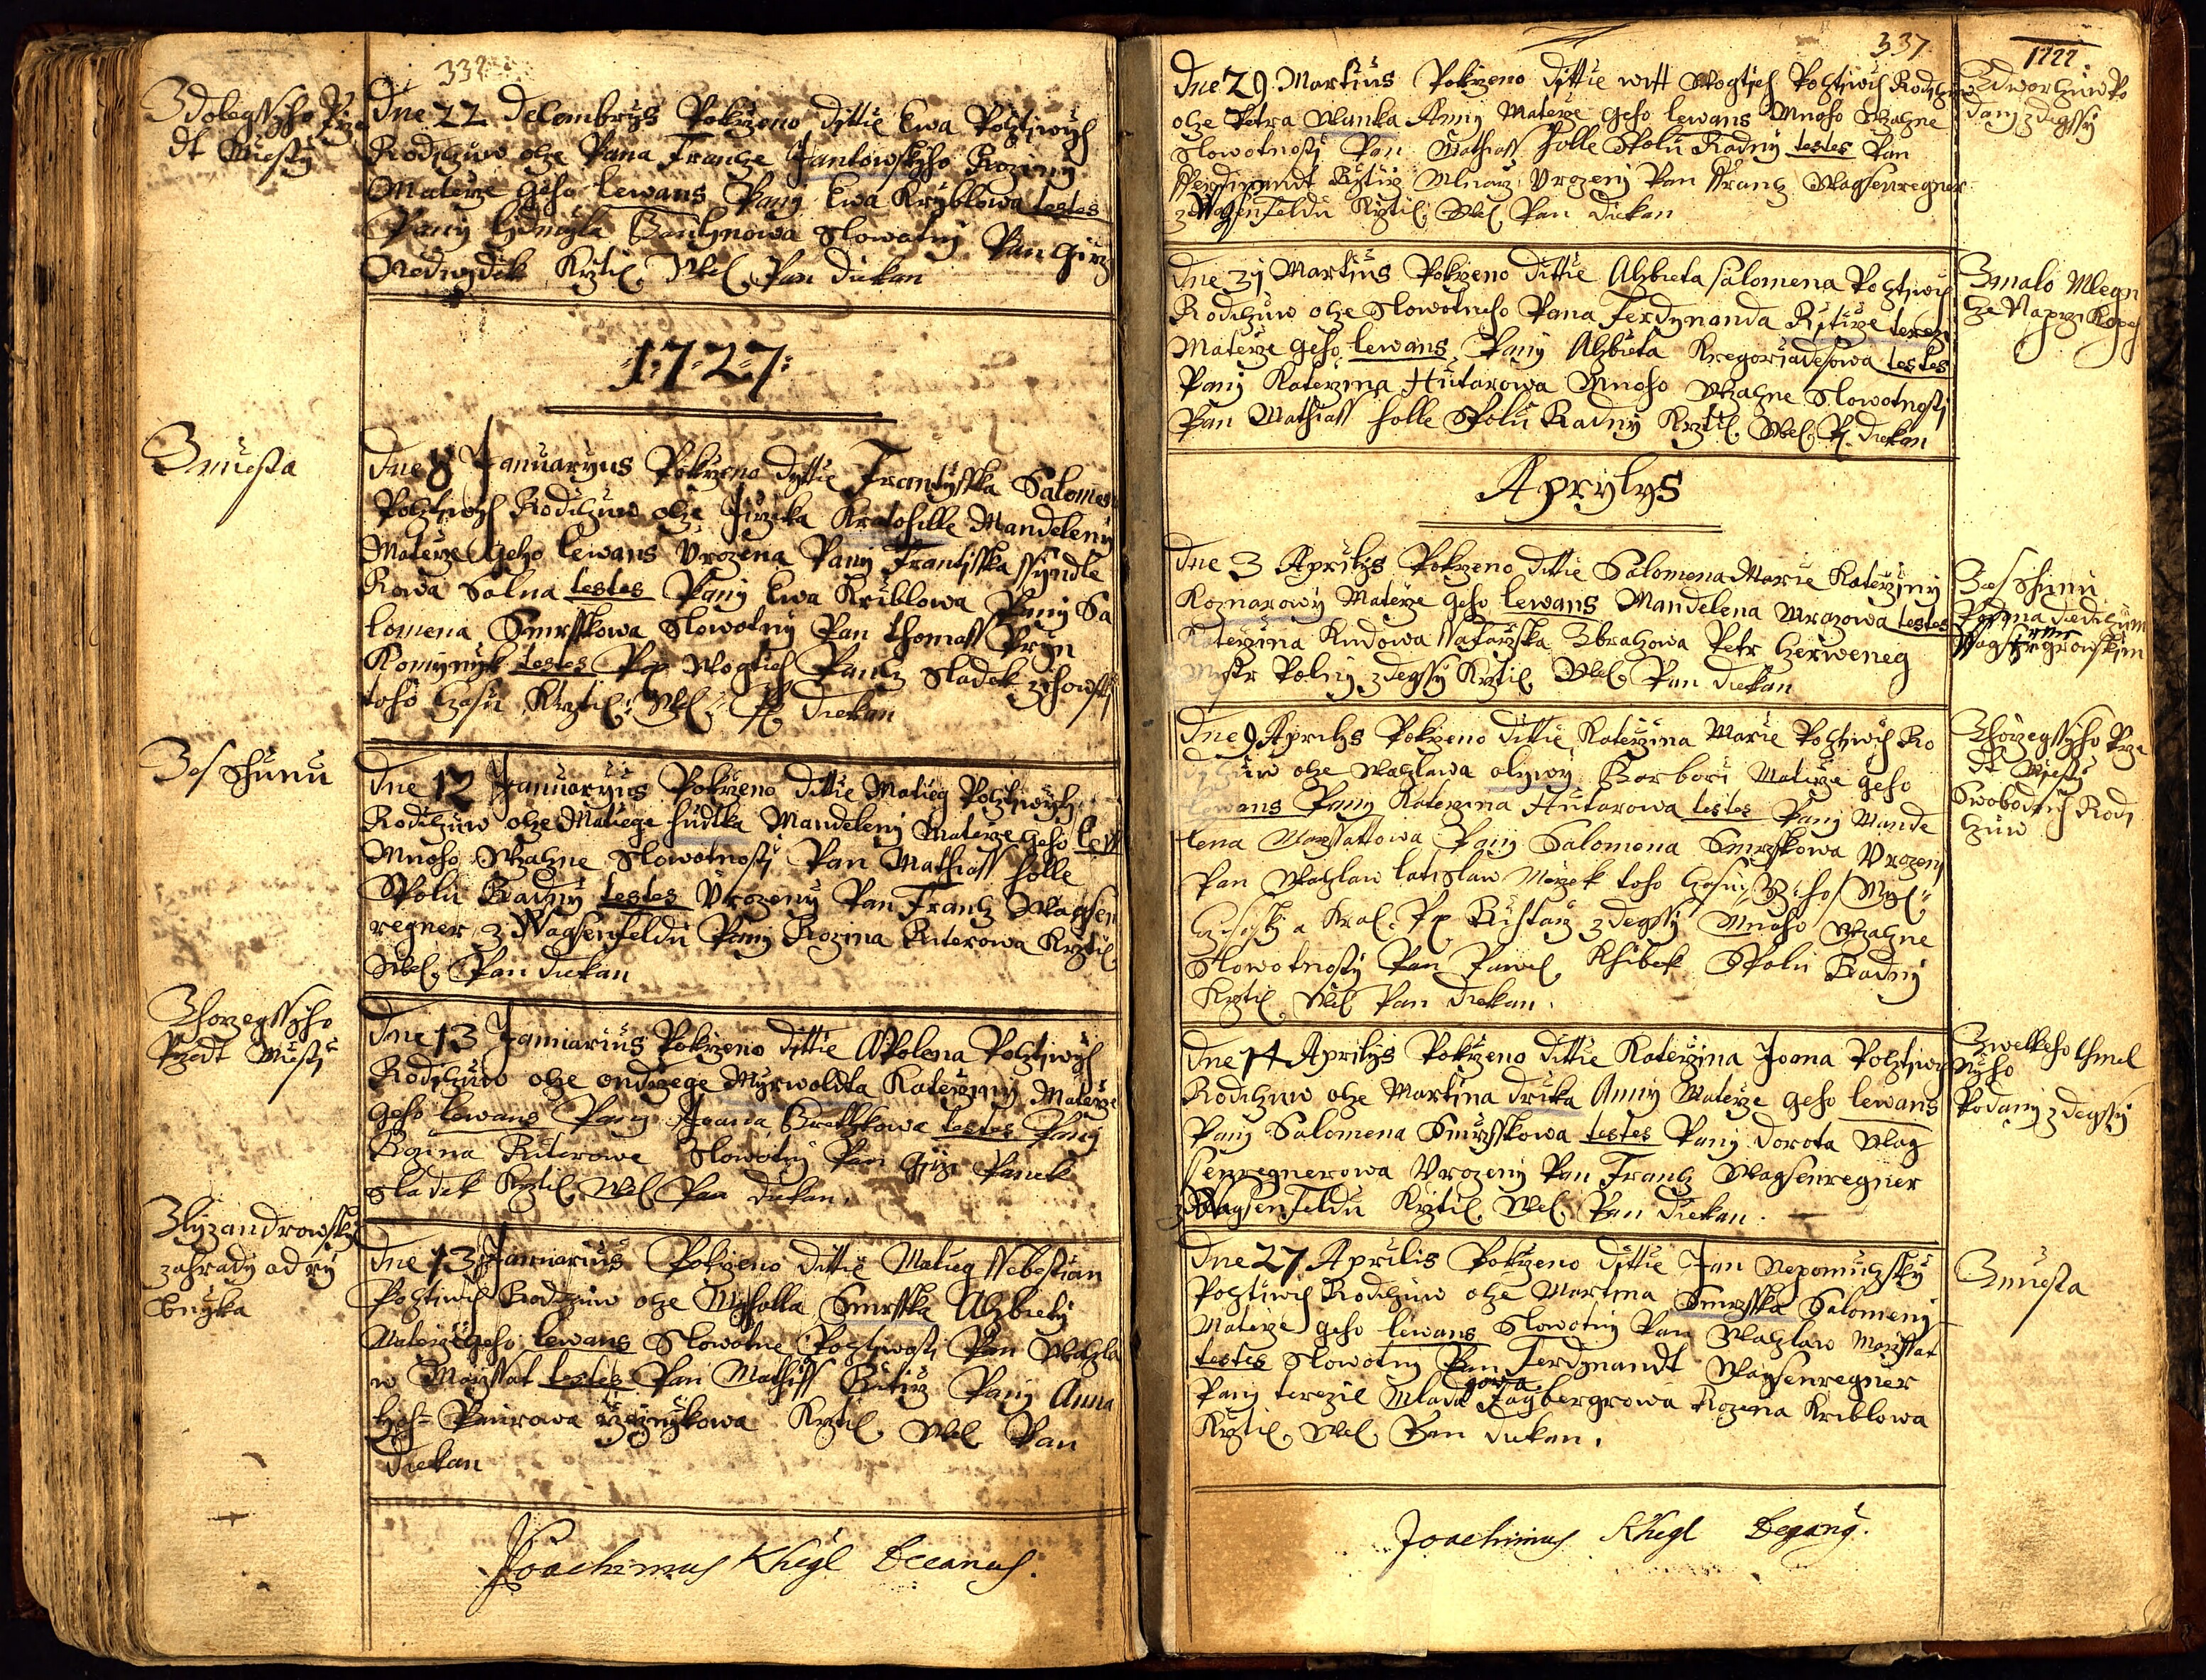 332
Zdolegssyho Prze
dt Miesty
Dne 22 Decembrys Pokrzeno dittie Ewa Pocztiwych
Rodiczuw otze Pana Frantze Jantowskyho Roziny
Materze geho lewans Pany Ewa Kryblowa testes
Pany Ludmyla Slowotny Pan Girzy
Nedwydek Krztil Wel Pan diekan
1727
Zmiesta
Dne 8 Januaryus Pokrzeno dyttie Frantysska Salomena
Pocztiwych Rodiczuw otze Jirzika Kratohille Mandeleny
Materze geho lewans Vrozena Pany Frantisska ssyndle
Rowa Solna testes Pany Ewa Kriblowa Pany Sa
lomena Smrsskowa Slowotny Pan thomass
testes Wogtiech Sladek
toho Czasu Krztil Wel P diekan
Zes Chunu
Dne 12 Januaryus Pokrzeno dittie Matieg Pocztiwych
Rodiczuw otze Matiege hudtka Mandeleny Materze geho lew
Mnoho Wzatzne Slowotnosti Pan Mathiass holle
Spolu Radny testes Vrozeny Pan Frantz Wagsen
regner z Wagsenfeldu Pany Rozina Ritirowa Krztil
Wel Pan diekan
Zhorzegssyho
Przedt Miesty
Dne 13 Januarius Pokrzeno dittie Apolena Pocztiwych
Rodiczuw otze ondrzege Myrwoldta Katerziny Materze
geho lewans Pany Joana testes Pany
Rozina Ritirowa Slowotny Pan Girzi Panek
Sladek Krztil Wel Pan diekan
Zlyzandrowsky
zahrady
Dne 13 Januarius Pokrzeno dittie Matieg ssebestian
Pocztiwich Rodiczuw otze Myholla Smrsska Alzbiety
Materze geho lewans Slowotne Pocztiwosti Pan Watzla
w Marssat testes Pan Mathiss Ritirz Pany Anna
Krztil Wel Pan
diekan
Joachimus Khegl Decanus.
337
1727
Zdworczuw Po
dany zdegssy
Dne 29 Martius Pokrzeno dittie witt Wogtiech Pocztiwich Rodiczuw
otze Petra Wanka Anny Materze geho lewans Mnoho Wzatzne
Slowotnosti Pan Mathiass holle Spolu Radny testes Pan
fferdinandt Ritirz Mlnarz Vrozeny Pan ffrantz Wagsenregner
z Wagsenfeldu Krztil Wel Pan diekan
Zmalo Mlegn
Dne 31 Martius Pokrzeno dittie Alzbieta Salomena Pocztiwich
Rodiczuw otze Slowotneho Pana Ferdynanda Ritirze terezi
Materze geho lewans Pany Alzbieta Kregoriadesowa testes
Pany Katerzina Hutarowa Mnoho Wzatzne Slowotnosti
Pan Mathiass holle Spolu Radny Krztil Wel P diekan
Aprylys
Zes Chunu
Dne 3 Aprilys Pokrzeno dittie Salomena Marie Katerziny
Komarowy Materze geho lewans Mandelena Mrazowa testes
Katerzina Kudowa Petr
Mystr Polny zdegssy Krztil Wel Pan diekan
Zhorzegssyho Prze
dt Miesty
Swobodnich Rodi
czuw
Dne 9 Aprilys Pokrzeno dittie Katerzina Marie Pocztiwich Ro
diczuw otze Watzlawa oliwy Barbori Materze geho
lewans Pany Katerzina Hutarowa testes Pany Mande
lena Marssattowa Pany Salomena Smrzskowa Vrozeny
Pan Watzlaw latislaw toho Czasu
zdegssy Mnoho Wzatzne
Slowotnosty Pan Pawel Spolu Radny
Krztil Wel Pan diekan
Zwelkeho Chmel
Podany zdegssy
Dne 14 Aprilys Pokrzeno dittie Katerzina Joana Pocztiwich
Rodiczuw otze Martina druka Anny Materze geho lewans
Pany Salomena Smrzskowa testes Pany dorota Wag
senregnerowa Vrozeny Pan Frantz Wagsenregner
z Wagsenfeldu Krztil Wel Pan diekan
Zmiesta
Dne 27 Aprilis Pokrzeno dittie Jan Nepomutzsky
Pocztiwich Rodiczuw otze Martina Smrzska Salomeny
Materze geho lewans Slowotny Pan Watzlaw Marssat
testes Slowotny Pan Ferdynandt Wagsenregner
Pany terezie Mlada Rozina Kriblowa
Krztil Wel Pan diekan.
Joachimus Khegl